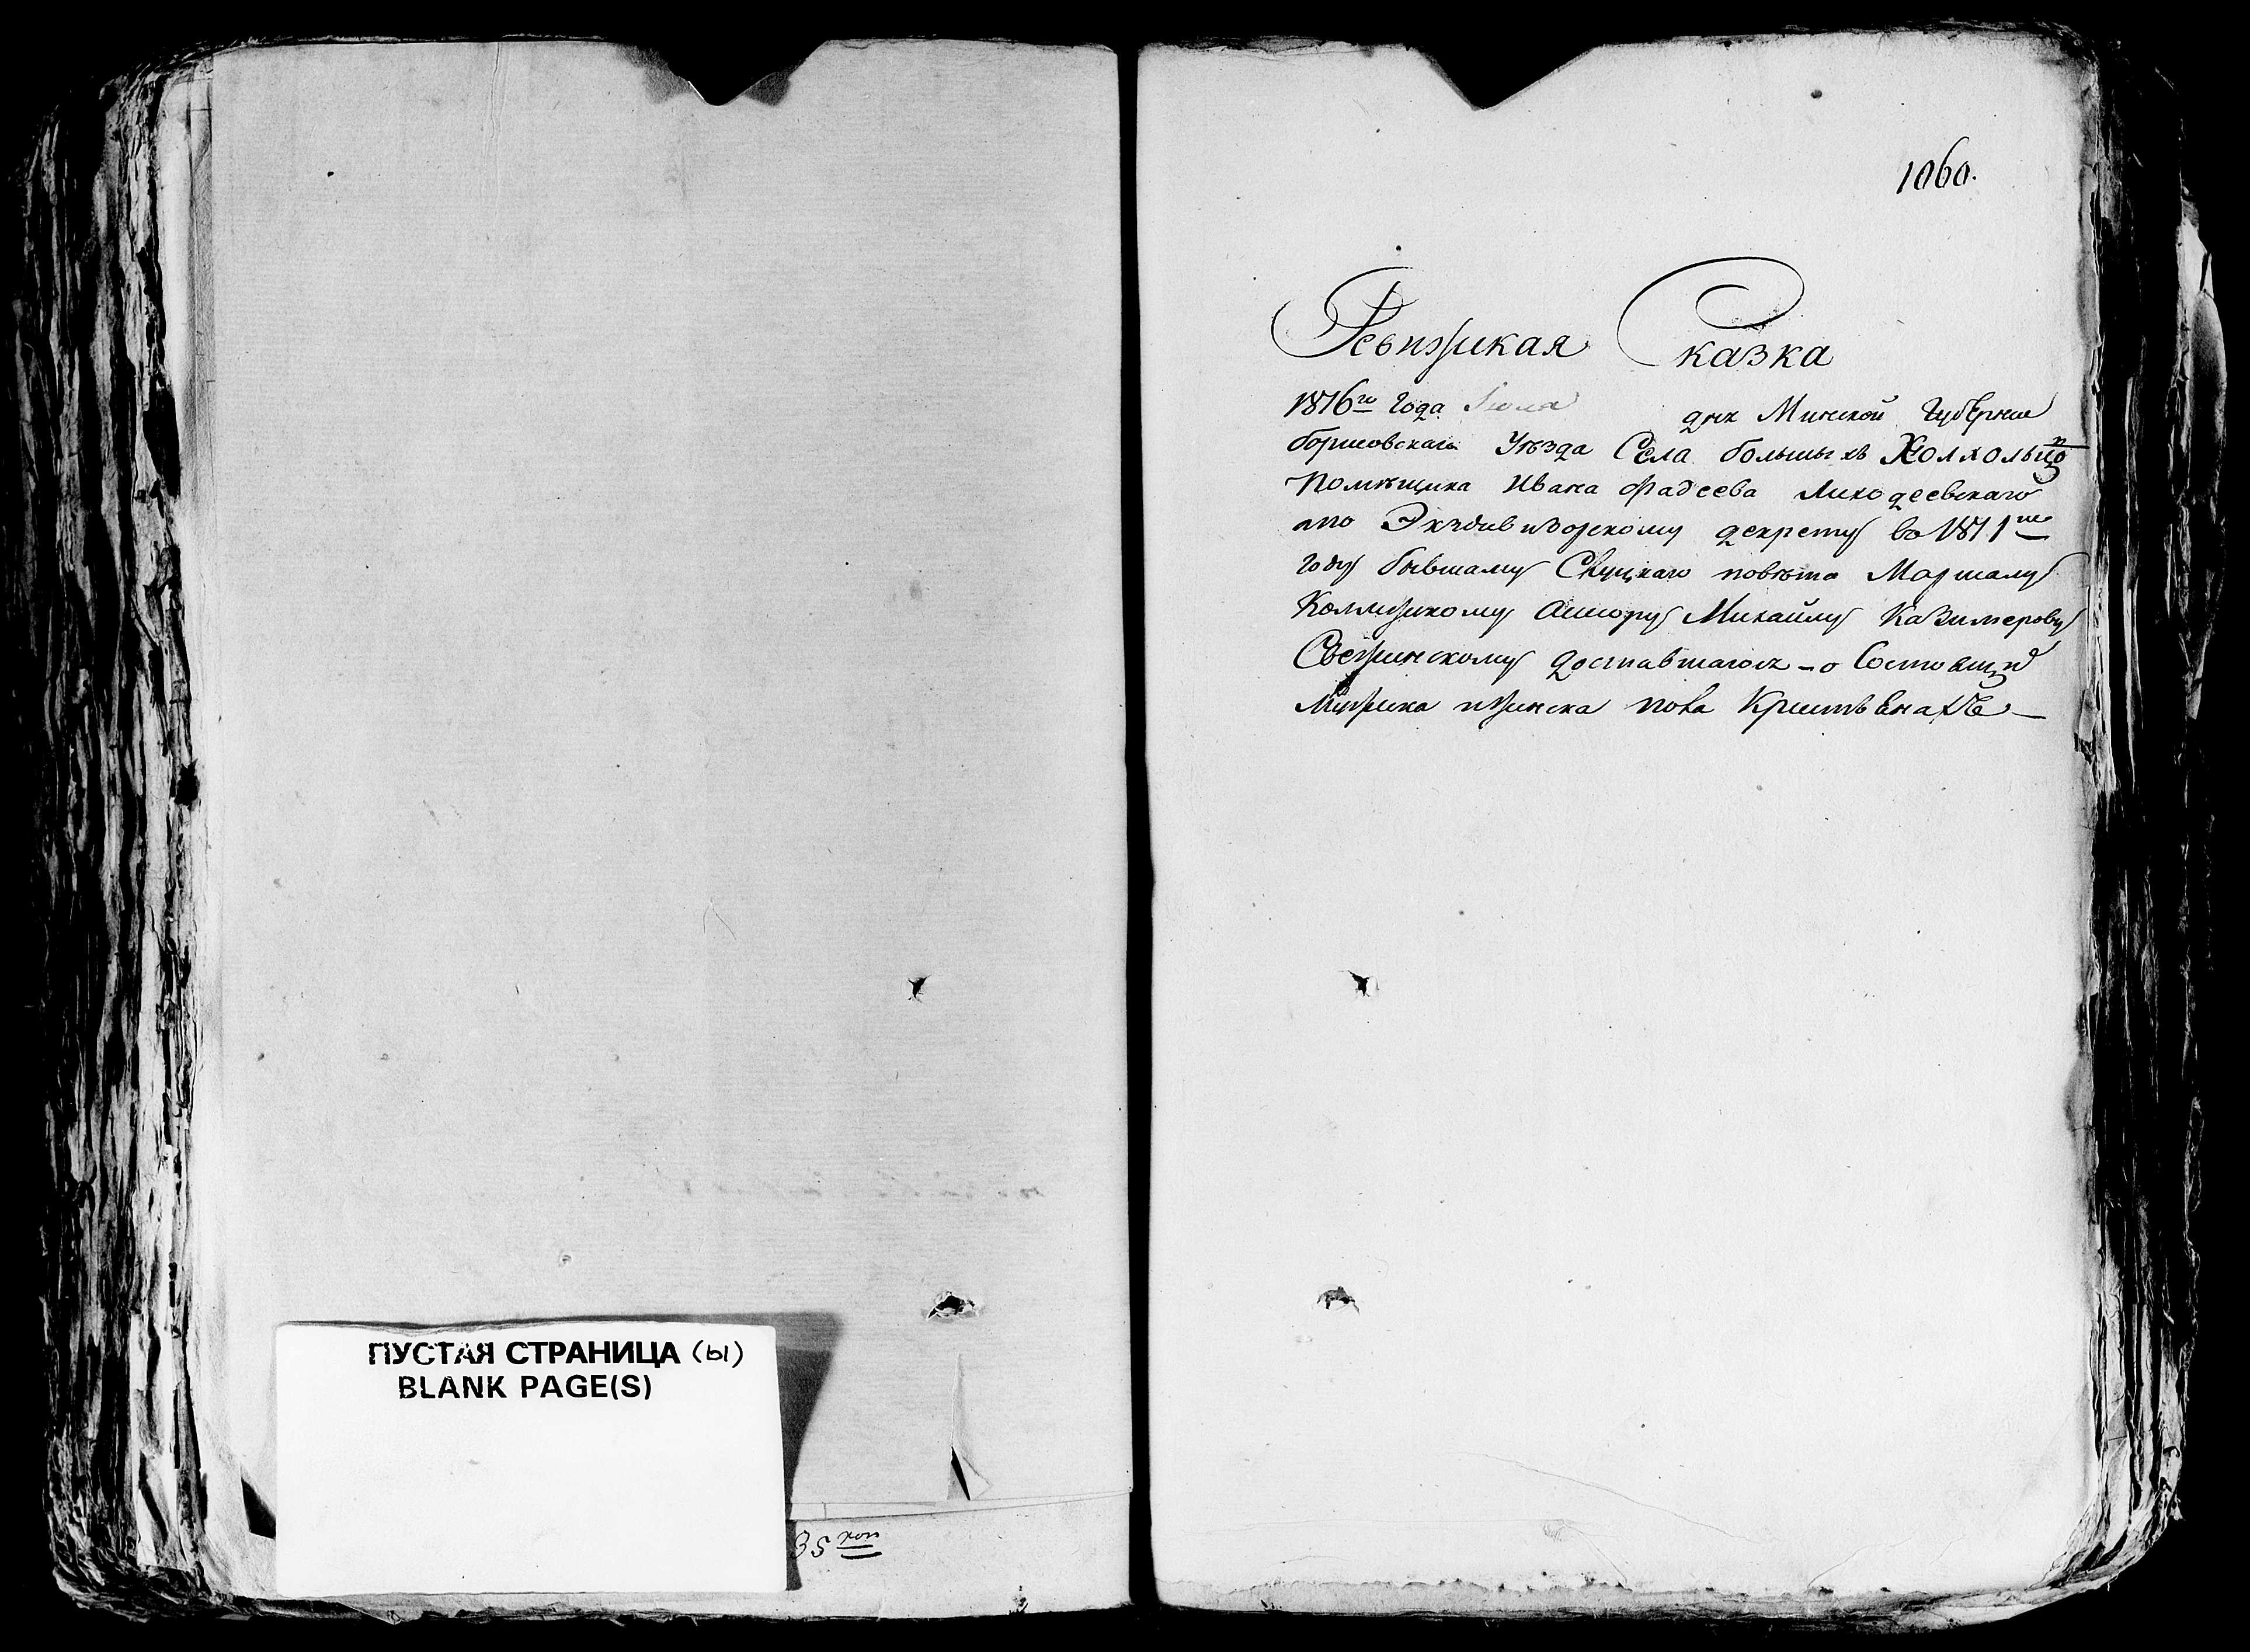 ПУСТАЯ СТРАНИЦА (ы)
BLANK PAGE(S)
35 коп
1060.
Ревизская Сказка
1816го года Июля дня Минской Губернии
борисовскаго Уѣзда Села большыхъ Холхольцо
Помѣщика Ивана Фадеева Лиходеевскаго
по Экздивизорскому декрету во 1811ме
году бывшему Слуцкаго повѣта Маршалу
Коллежскому Асесору Михайлу Казимерову
Свежинскому доставшагося – о Состоящих
мужеска и женска пола Крестьянахъ –